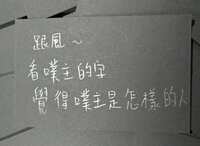 跟風~
看噗主的字
覺得噗主是怎樣的人